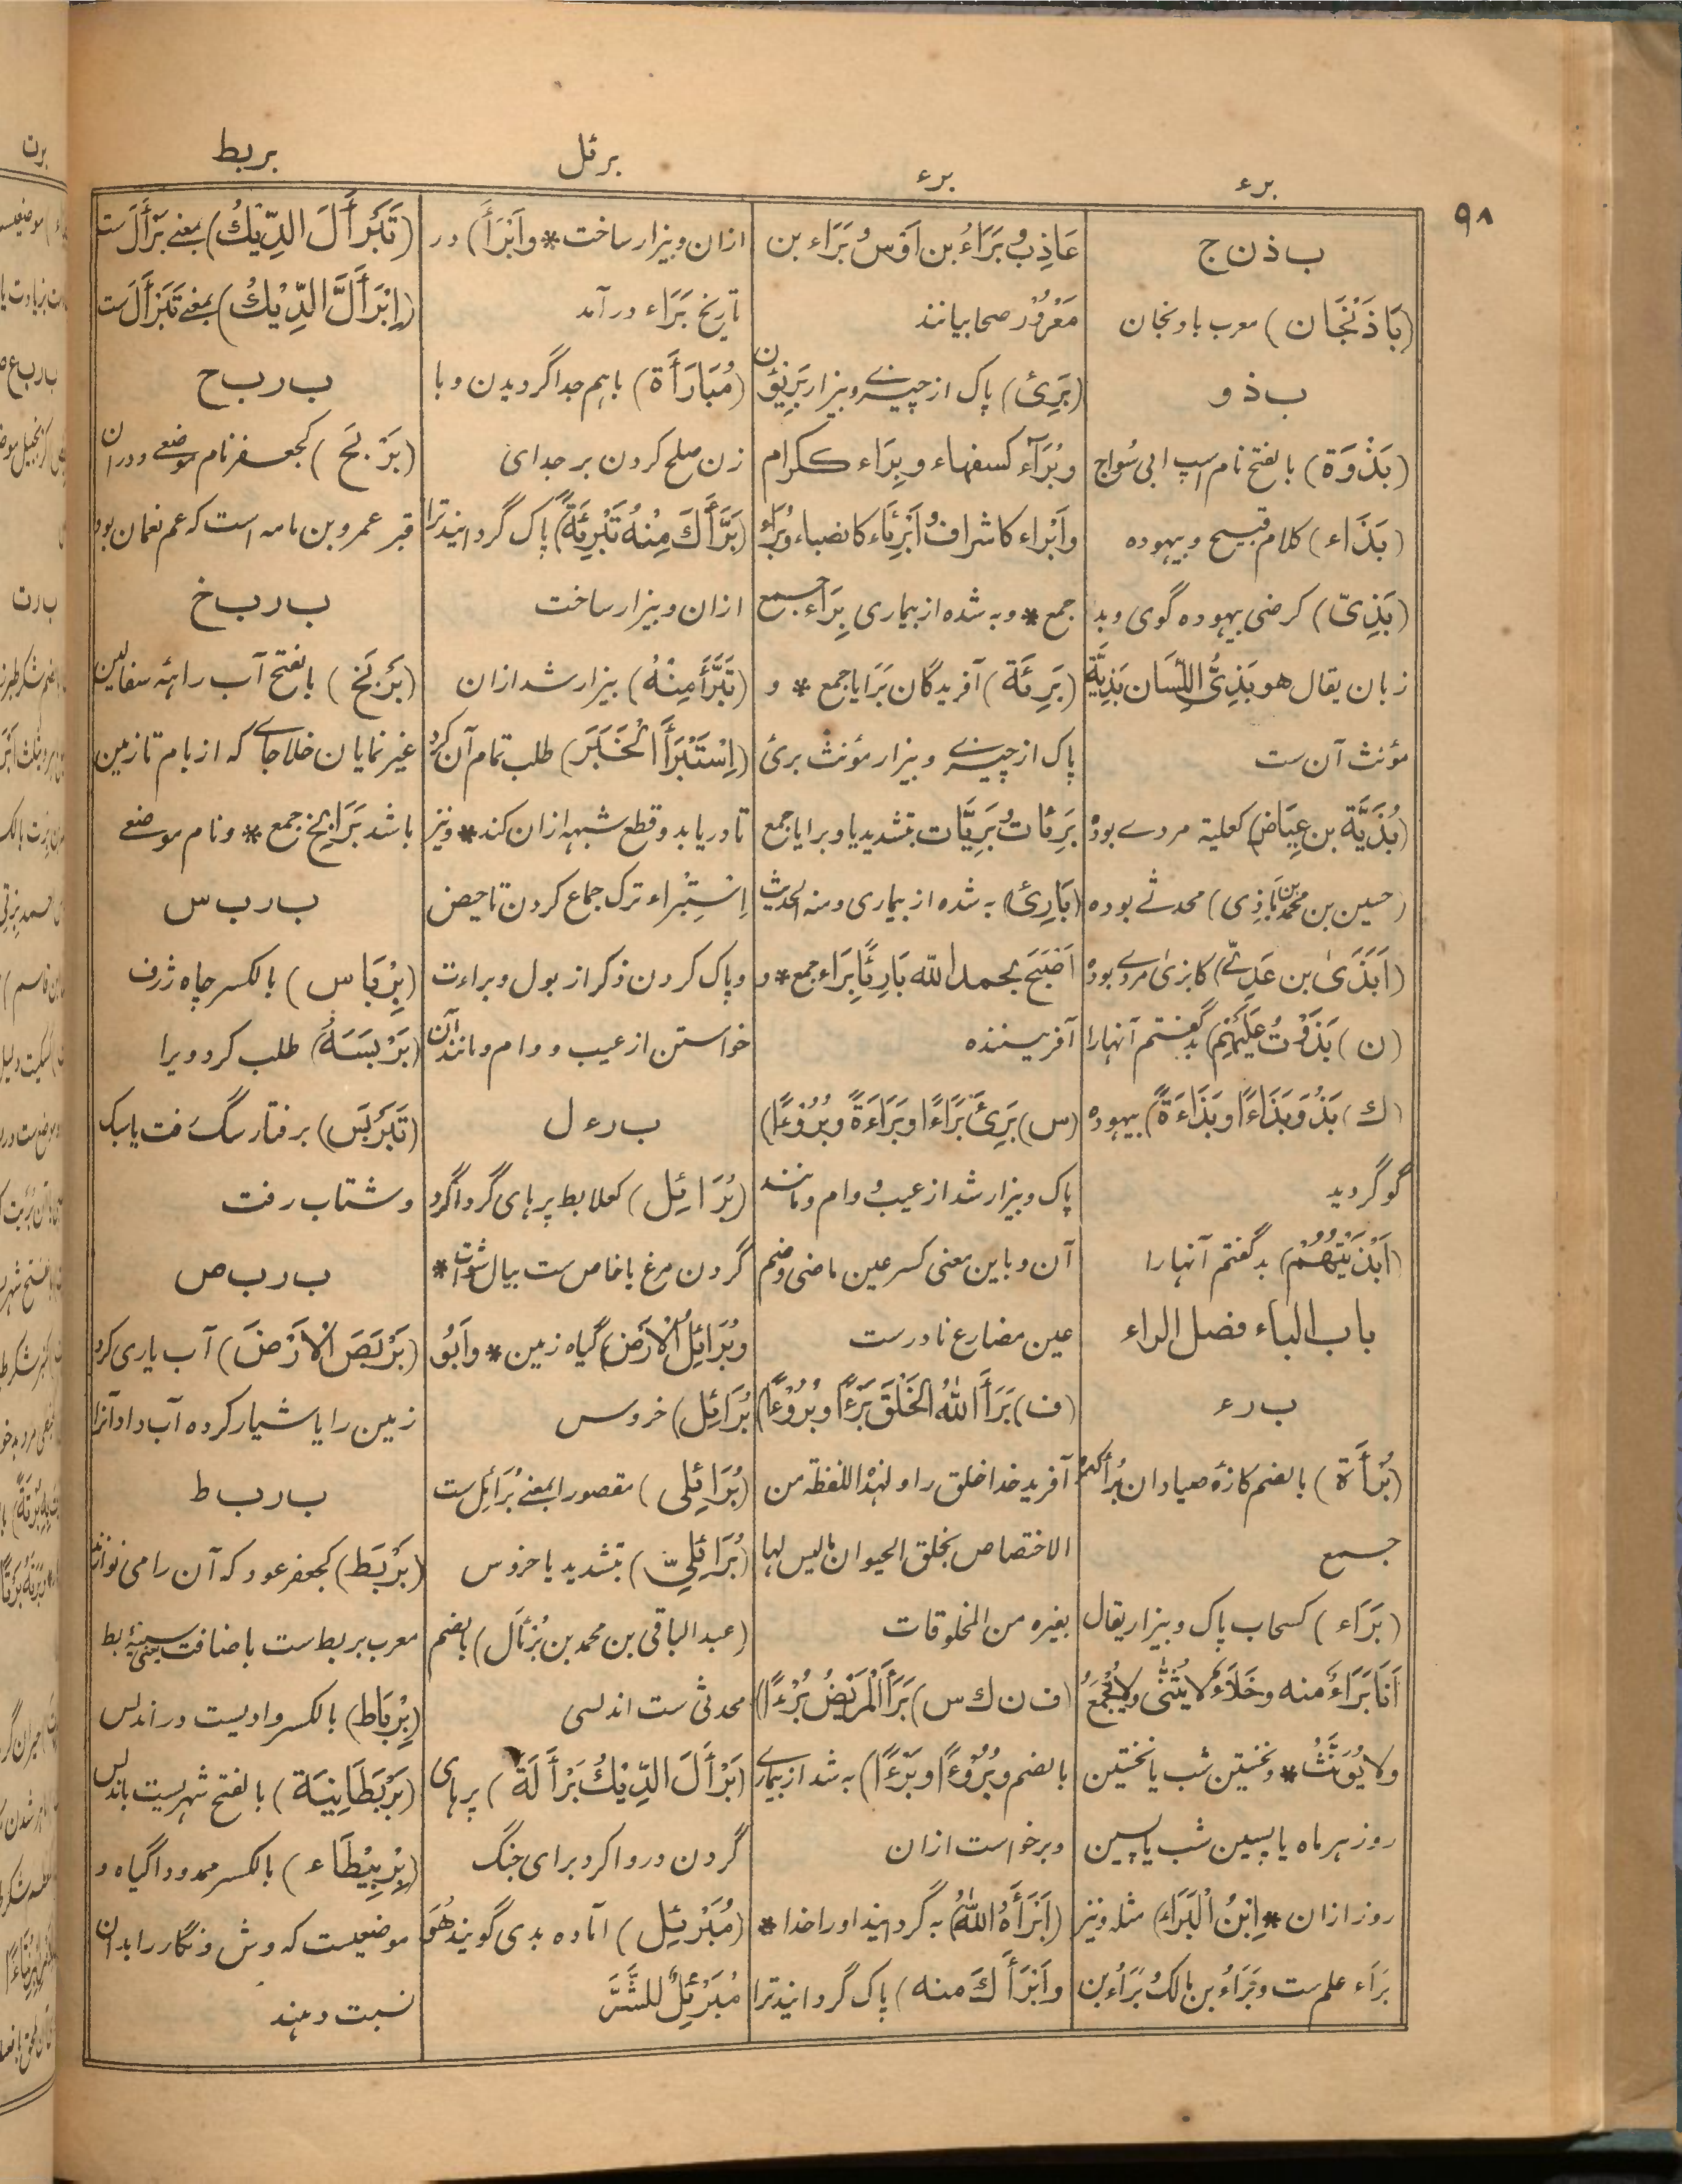 ٩٨
برء
برء
برئل
بربط
ب ذ ن ج
(بَاذَنْجَان) معرب بادنجان
ب ذ و
(بَذْوَة) بالفتح نام اسپ ابی سُواج
(بَذَاء) کلام قبیح و بیهوده
(بَذِیّ) کرضی بیهوده گوی و بد
زبان یقال هو بَذِیُّ اللِّسَان بَذِیَّة
مؤنث آن ست
(بُذَیَّة بن عِیَاض) کعلیة مردے بوده
(حسین بن محمد بن بَاذِی) محدثے بوده
(اَبْذَیٰ بن عَدِیّ) کابزیٰ مردے بوده
(ن) بَذَوْتُ عَلَیْهِم) بد گفتم آنها را
(ك) بَذُوَ بَذَاءًا و بَذَاءَةً) بیهوده
گو گردید
(اَبْذَیْتُهُمْ) بد گفتم آنها را
باب الباء فصل الراء
ب ر ء
(بُرْأَة) بالضم کازهٔ صیادان بُرَأ
جمع
(بَرَاء) کسحاب پاک و بیزار یقال
اَنَا بَرَاءٌ منه و خَلَاءٌ لا یُثَنّٰی ولا یُجْمَعُ
ولا یُؤَنَّثُ * و نخستین شب یا نخستین
روز هر ماه یا پسین شب یا پسین
روز ازان * اِبْنُ الْبَرَاء) مثله و نیز
بَرَاء علم ست و بَرَاءُ بن مالك و بَرَاءُ بن
عَاذِب و بَرَاءُ بن اَوْس و بَرَاء بن
مَعْرُوْر صحابیانند
(بَرِئ) پاک از چیزے و بیزار بَرِیْئُون
و بُرَآء کسفهاء و بِرَاء ککرام
و اَبْرَاء کاشراف و اَبْرِئَاء کانصباء و بُرَاء
جمع * و به شده از بیماری بِرَاء جمع
(بَرِئَة) آفریدگان بَرَایا جمع * و
پاک از چیزے و بیزار مؤنث بری
بَرِئَات و بَرِیَّات بتشدید یا و برایا جمع
(بَارِئ) به شده از بیماری و منه الحدیث
اَصْبَحَ بحمد الله بَارِئًا بِرَاء جمع * و
آفریننده
(س) بَرِئَ بَرَاءًا و بَرَاءَةً و بُرُوْءًا)
پاک و بیزار شد از عیب و وام و مانند
آن و باین معنی کسر عین ماضی و ضم
عین مضارع نادرست
(ف) بَرَأَ اللّٰهُ الخَلْقَ بَرْءًا و بُرُوْءًا)
آفرید خدا خلق را و لهذه اللفظة من
الاختصاص بخلق الحیوان ما لیس لها
بغیره من المخلوقات
(ف ن ك س) بَرَأَ الْمَرِیْضُ بُرْءًا)
بالضم و بُرُوْءًا و بَرْءًا) به شد از بیماری
و برخواست ازان
(اَبْرَأَهُ اللّٰهُ) به گردانید او را خدا *
و اَبْرَأَكَ منه) پاک گردانید ترا
ازان و بیزار ساخت * و اَبْرَأَ) در
تاریخ بَرَاء درآمد
(مُبَارَأَة) باهم جدا گردیدن و با
زن صلح کردن بر جدای
(بَرَّأَكَ مِنْهُ تَبْرِئَةً) پاک گردانید ترا
ازان و بیزار ساخت
(تَبَرَّأَ مِنْهُ) بیزار شد ازان
(اِسْتَبْرَأَ الْخَبَرَ) طلب تمام آن کرد
تا دریابد و قطع شبهه ازان کند * و نیز
اِسْتِبْرَاء ترک جماع کردن تا حیض
و پاک کردن ذکر از بول و براءت
خواستن از عیب و وام و مانند آن
ب ر ء ل
(بُرَائِل) کعلابط پرهای گرداگرد
گردن مرغ یا خاص ست ببال *
و بُرَائِلُ الْاَرْض) گیاه زمین * و اَبُو
بُرَائِل) خروس
(بُرَائِلی) مقصورا بمعنے بُرَائِل ست
(بُرَائِلِیّ) بتشدید یا خروس
(عبدالباقی بن محمد بن بُرْأَل) بالضم
محدثی ست اندلسی
(بَرْأَلَ الدِّیْكُ بَرْأَلَةً) پرهای
گردن دروا کرد برای جنگ
(مُبَرْئِل) آماده بدی گویند هُوَ
مُبَرْئِلٌ للشَّرِّ
(تَبَرْأَلَ الدِّیْكُ) بمعنے بَرْأَلَ ست
(اِبْرَأَلَّ الدِّیْكُ) بمعنے تَبَرْأَلَ ست
ب ر ب ح
(بَرْبَح) کجعفر نام موضعے و دران
قبر عمرو بن مامه است که عم نعمان بود
ب ر ب خ
(بَرْبَخ) بالفتح آب راهه سفالین
غیر نمایان خلا جاے که از بام تا زمین
باشد بَرَابِخ جمع * و نام موضعے
ب ر ب س
(بِرْبَاس) بالکسر چاه ژرف
(بَرْبَسَهُ) طلب کرد ویرا
(تَبَرْبَسَ) برفتار سگ رفت یا سبک
و شتاب رفت
ب ر ب ص
(بَرْبَصَ الْاَرْضَ) آب یاری کرد
زمین را یا شیار کرده آب داد آنرا
ب ر ب ط
(بَرْبَط) کجعفر عود که آن را می نوازند
معرب بربط ست باضافت یعنی سینهٔ بط
(بِرْبَاط) بالکسر وادیست در اندلس
(بَرْبَطَانِیَة) بالفتح شهریست باندلس
(بِرْبِیْطَاء) بالکسر ممدودا گیاه و
موضعیست که وش و نگار را بدان
نسبت دهند